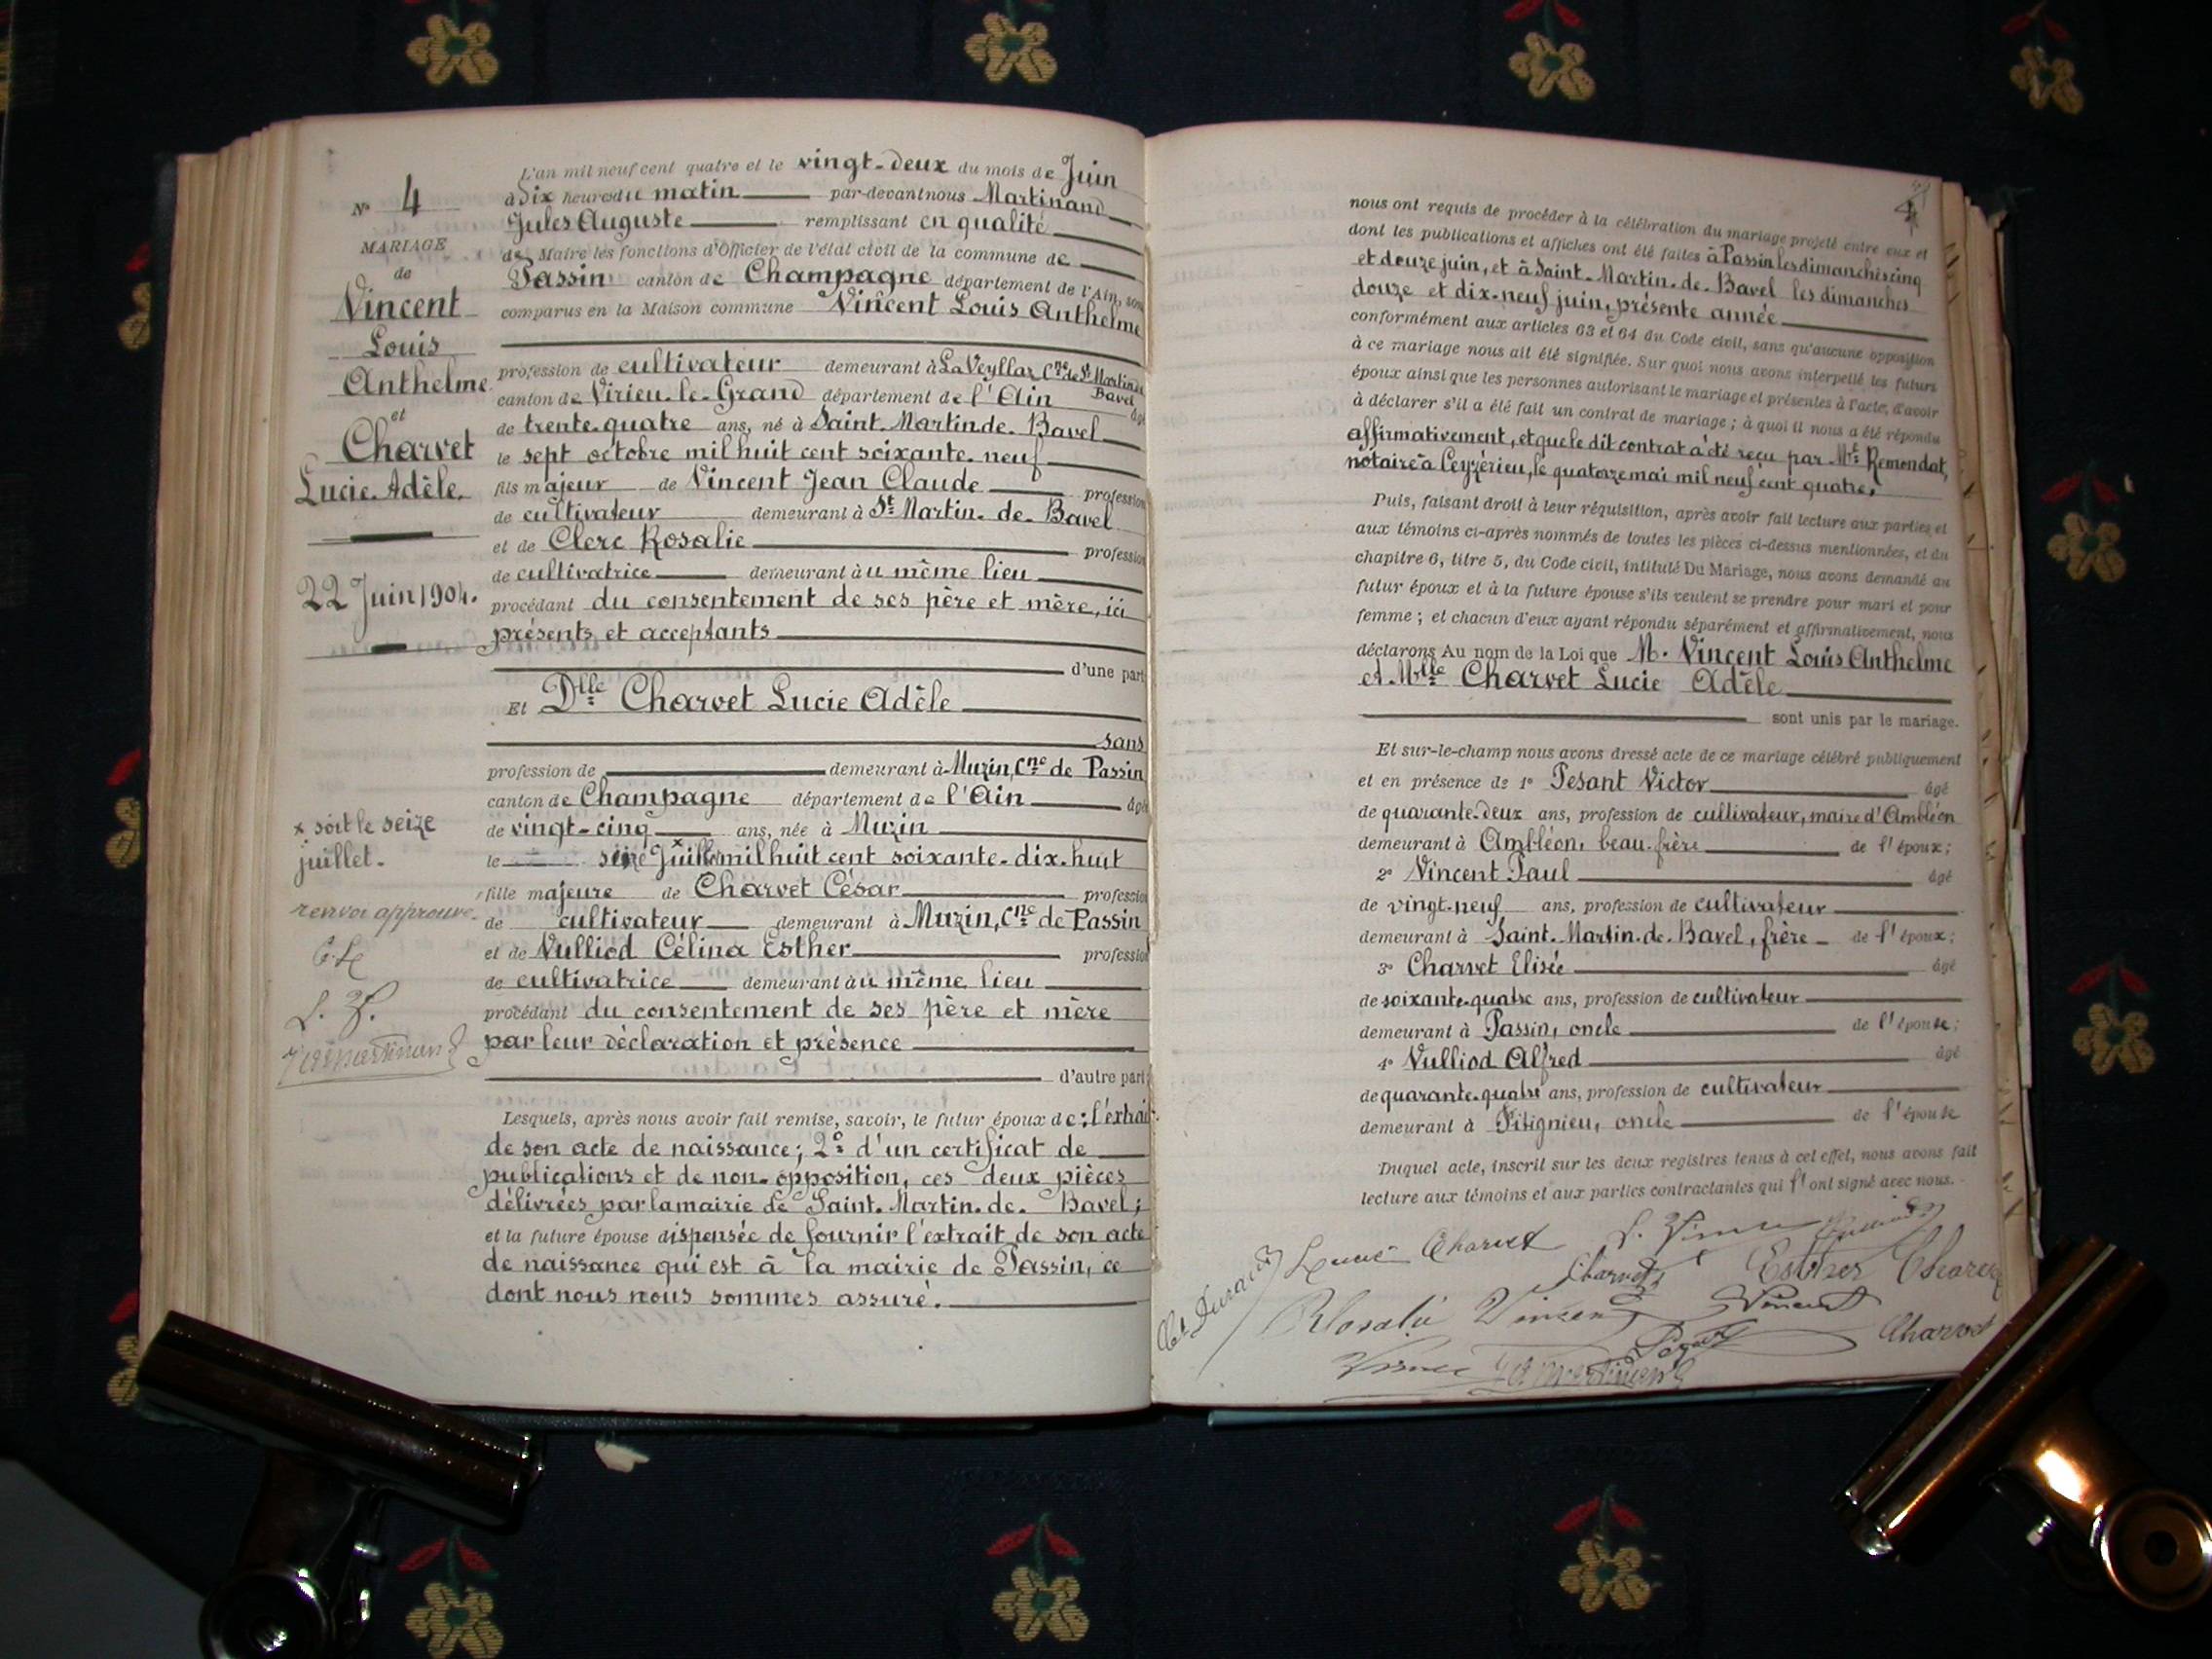 N° 4
MARIAGE
de
Vincent
Louis
Anthelme
et
Charvet
Lucie Adèle.
22 Juin 1904.
x soit le seize
juillet.
renvoi approuvé.
L'an mil neuf cent quatre et le vingt-deux du mois de Juin
à dix heures du matin par-devant nous Martinand
Jules Auguste remplissant en qualité
de Maire les fonctions d'Officier de l'état civil de la commune de
Passin canton de Champagne département de l'Ain, sont
comparus en la Maison commune Vincent Louis Anthelme
profession de cultivateur demeurant à La Veyllaz Cne de St Martin de
Bavel
canton de Virieu-le-Grand département de l'Ain âgé
de trente-quatre ans, né à Saint-Martin de-Bavel
le sept octobre mil huit cent soixante-neuf
fils majeur de Vincent Jean Claude profession
de cultivateur demeurant à St Martin-de-Bavel
et de Clerc Rosalie profession
de cultivatrice demeurant au même lieu
procédant du consentement de ses père et mère, ici
présents et acceptants
d'une part
Et Dlle Charvet Lucie Adèle
sans
profession de demeurant à Muzin, Cne de Passin
canton de Champagne département de l'Ain âgé
de vingt-cinq ans, née à Muzin
le seize Juillet x mil huit cent soixante-dix-huit
fille majeure de Charvet César profession
de cultivateur demeurant à Muzin, Cne de Passin
et de Vulliod Célina Esther profession
de cultivatrice demeurant au même lieu
procédant du consentement de ses père et mère
par leur déclaration et présence
d'autre part
Lesquels, après nous avoir fait remise, savoir, le futur époux de: l'extrait
de son acte de naissance; 2° d'un certificat de
publications et de non-opposition, ces deux pièces
délivrées par la mairie de Saint-Martin-de-Bavel;
et la future épouse dispensée de fournir l'extrait de son acte
de naissance qui est à la mairie de Passin, ce
dont nous nous sommes assuré.
4
nous ont requis de procéder à la célébration du mariage projeté entre eux et
dont les publications et affiches ont été faites à Passin les dimanches cinq
et douze juin, et à Saint-Martin-de-Bavel les dimanches
douze et dix-neuf juin, présente année
conformément aux articles 63 et 64 du Code civil, sans qu'aucune opposition
à ce mariage nous ait été signifiée. Sur quoi nous avons interpellé les futurs
époux ainsi que les personnes autorisant le mariage et présentes à l'acte, d'avoir
à déclarer s'il a été fait un contrat de mariage; à quoi il nous a été répondu
affirmativement, et que le dit contrat a été reçu par Mt Remondat,
notaire à Ceyzérieu, le quatorze mai mil neuf cent quatre.
Puis, faisant droit à leur réquisition, après avoir fait lecture aux parties et
aux témoins ci-après nommés de toutes les pièces ci-dessus mentionnées, et du
chapitre 6, titre 5, du Code civil, intitulé Du Mariage, nous avons demandé au
futur époux et à la future épouse s'ils veulent se prendre pour mari et pour
femme; et chacun d'eux ayant répondu séparément et affirmativement, nous
déclarons Au nom de la Loi que M. Vincent Louis Anthelme
et Mlle Charvet Lucie Adèle
sont unis par le mariage.
Et sur-le-champ nous avons dressé acte de ce mariage célébré publiquement
et en présence de 1° Pesant Victor âgé
de quarante-deux ans, profession de cultivateur, maire d'Ambléon
demeurant à Ambléon, beau-frère de l'époux;
2° Vincent Paul âgé
de vingt-neuf ans, profession de cultivateur
demeurant à Saint-Martin-de-Bavel, frère de l'époux;
3° Charvet Elisée âgé
de soixante-quatre ans, profession de cultivateur
demeurant à Passin, oncle de l'épouse;
4° Vulliod Alfred âgé
de quarante-quatre ans, profession de cultivateur
demeurant à Pitignieu, oncle de l'épouse
Duquel acte, inscrit sur les deux registres tenus à cet effet, nous avons fait
lecture aux témoins et aux parties contractantes qui l'ont signé avec nous.
Charvet
Charvet
Esther Charvet
Rosalie Vincent
Vincent
Charvet